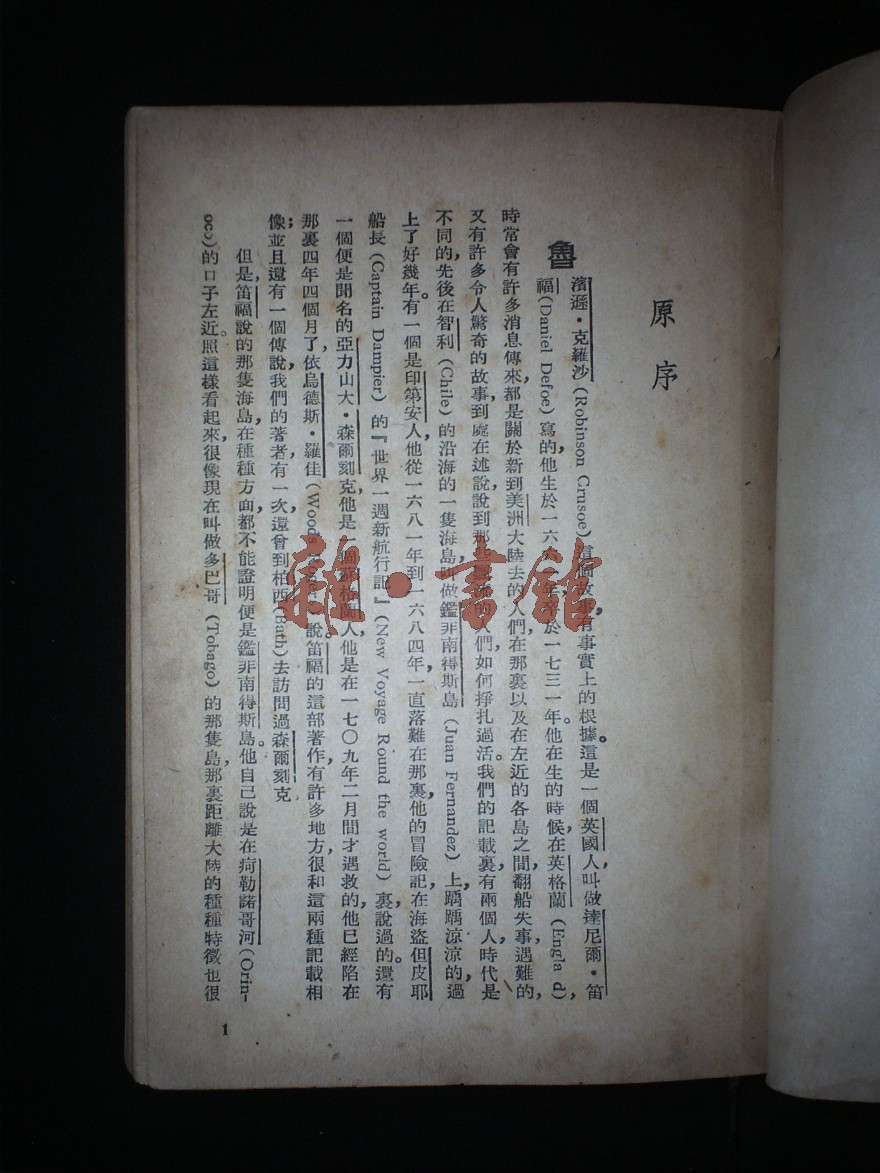 原序
魯濱遜·克羅沙(Robinson Crusoe)這個故事,有事實上的根據。這是一個英國人,叫做達尼爾·笛
福(Daniel Defoe)寫的,他生於一六六 年,卒於一七三一年。他在生的時候,在英格蘭(Engla d),
時常會有許多消息傳來,都是關於新到美洲大陸去的人們,在那裏以及在左近的各島之間,翻船失事遇難的,
又有許多令人驚奇的故事,到處在述說,說到那些 的人們,如何掙扎過活。我們的記載裏,有兩個人,時代是
不同的,先後在智利(Chile)的沿海的一隻海島,叫做鑑非南得斯島(Juan Fernandez)上,踽踽涼涼的,過
上了好幾年。有一個是印第安人,他從一六八一年到一六八四年,一直落難在那裏,他的冒險記,在海盜但皮耶
船長(Captain Dampier)的『世界一週新航行記』(New Voyage Round the world)裏,說過的。還有
一個便是聞名的亞力山大·森爾刻克,他是一個蘇格蘭人,他是在一七〇九年二月間才遇救的,他已經陷在
那裏四年四個月了,依烏德斯·羅佳(Woods )說,笛福的這部著作,有許多地方,很和這兩種記載相
像;並且還有一個傳說,我們的著者,有一次,還曾到柏西(Bath)去訪問過森爾刻克
但是,笛福說的那隻海島,在種種方面,都不能證明便是鑑非南得斯島。他自己說是在疴勒諾哥河(Orin-
oco)的口子左近。照這樣看起來,很像現在叫做多巴哥(Tobago)的那隻島,那裏距離大陸的種種特徵,也很
1
雜·書館